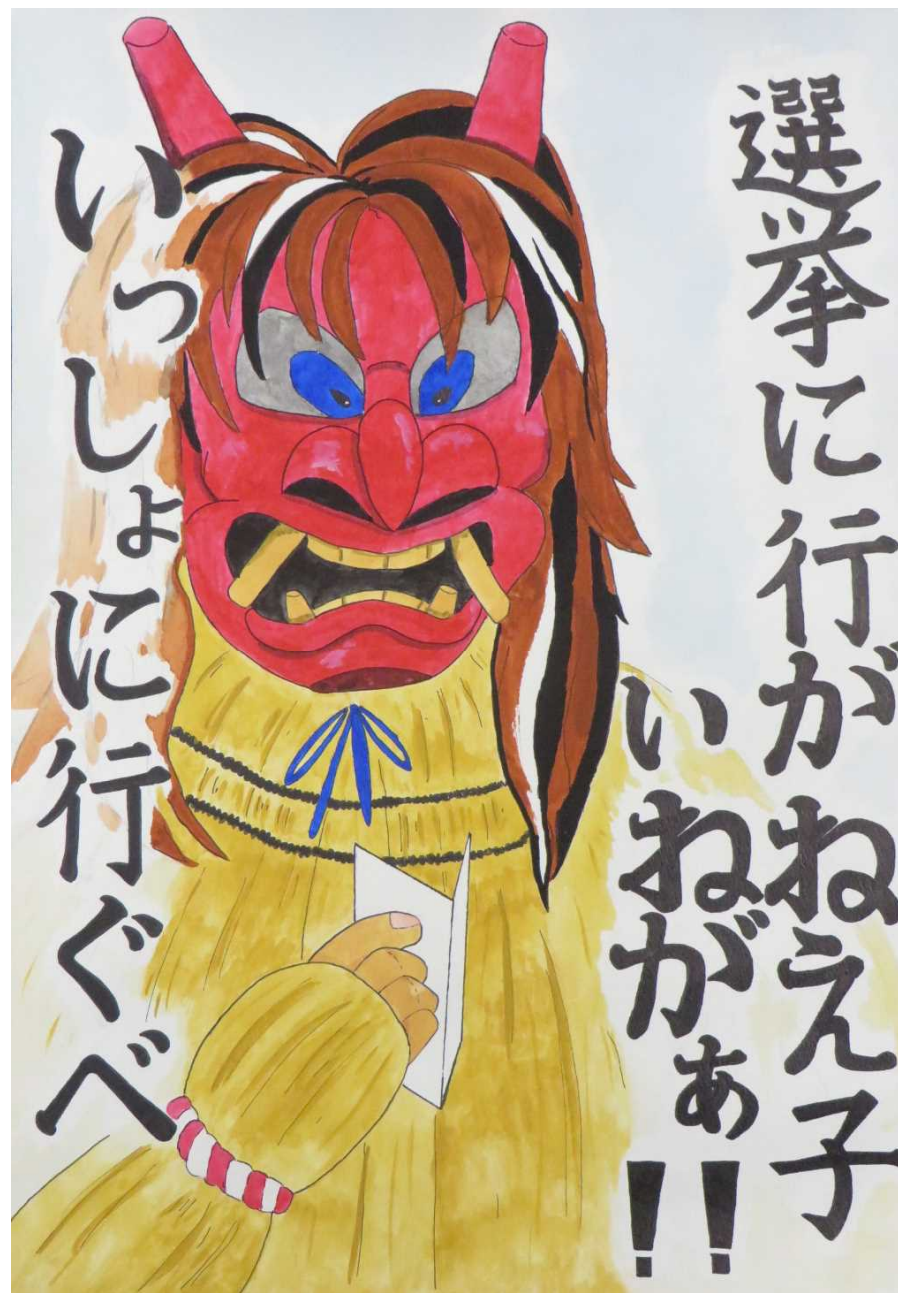 選挙に行がねえ子
いねがぁ!!
いっしょに行ぐべ